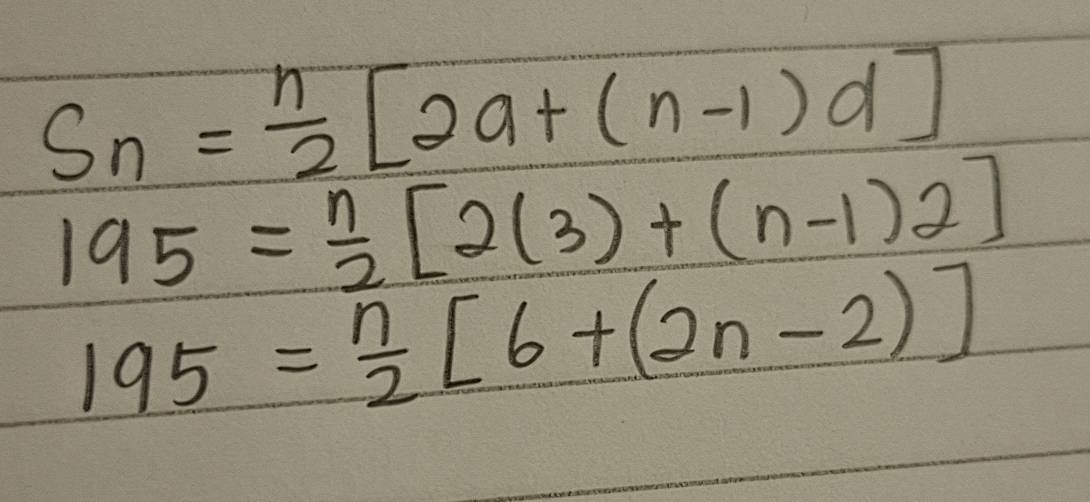 Sn = n/2 [2a+(n-1)d]
195 = n/2 [2(3)+(n-1)2]
195 = n/2 [6+(2n-2)]